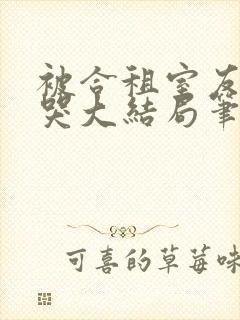 被合租室友
哭大结局笔
可喜的草莓味